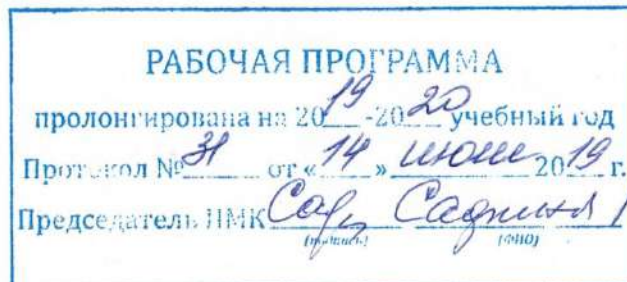 РАБОЧАЯ ПРОГРАММА
пролонгирована на 2019-2020 учебный год
Протокол № 31 от «14» июня 2019 г.
Председатель НМК
(подпись) (ФИО)